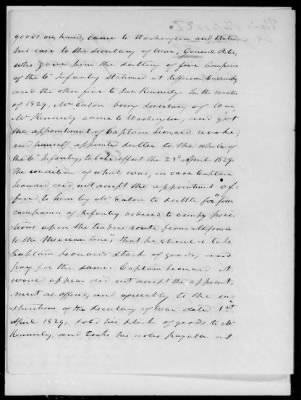 goods on hand, came to Washington and stated
his case to the Secretary of War, General Eaton,
who gave him the sutling of five companies
of the 6th Infantry stationed at Jefferson Barracks
and the other five to Mr. Kennerly. In the month
of 1829, Mr. Eaton being Secretary of War
Mr. Kennerly came to Washington, and got
the appointment of Captain Leonard revoked
and himself appointed sutler to the whole of
the 6th Infantry, to take effect the 23d April 1829.
The condition of which was, in case Captain
Leonard did not accept the appointment of-
fered to him by Mr Eaton to suttle for four
companies of Infantry ordered to occupy posi-
tions upon the trading route from Missouri
to the Mexican line, that he should take
Captain Leonards stock of goods, and
pay for the same. Captain Leonard it
would appear did not accept the appoint-
ment as offered, and agreeably to the in-
structions of the Secretary of War dated 1st
April 1829, sold his stock of goods to Mr
Kennerly, and took his notes payable at